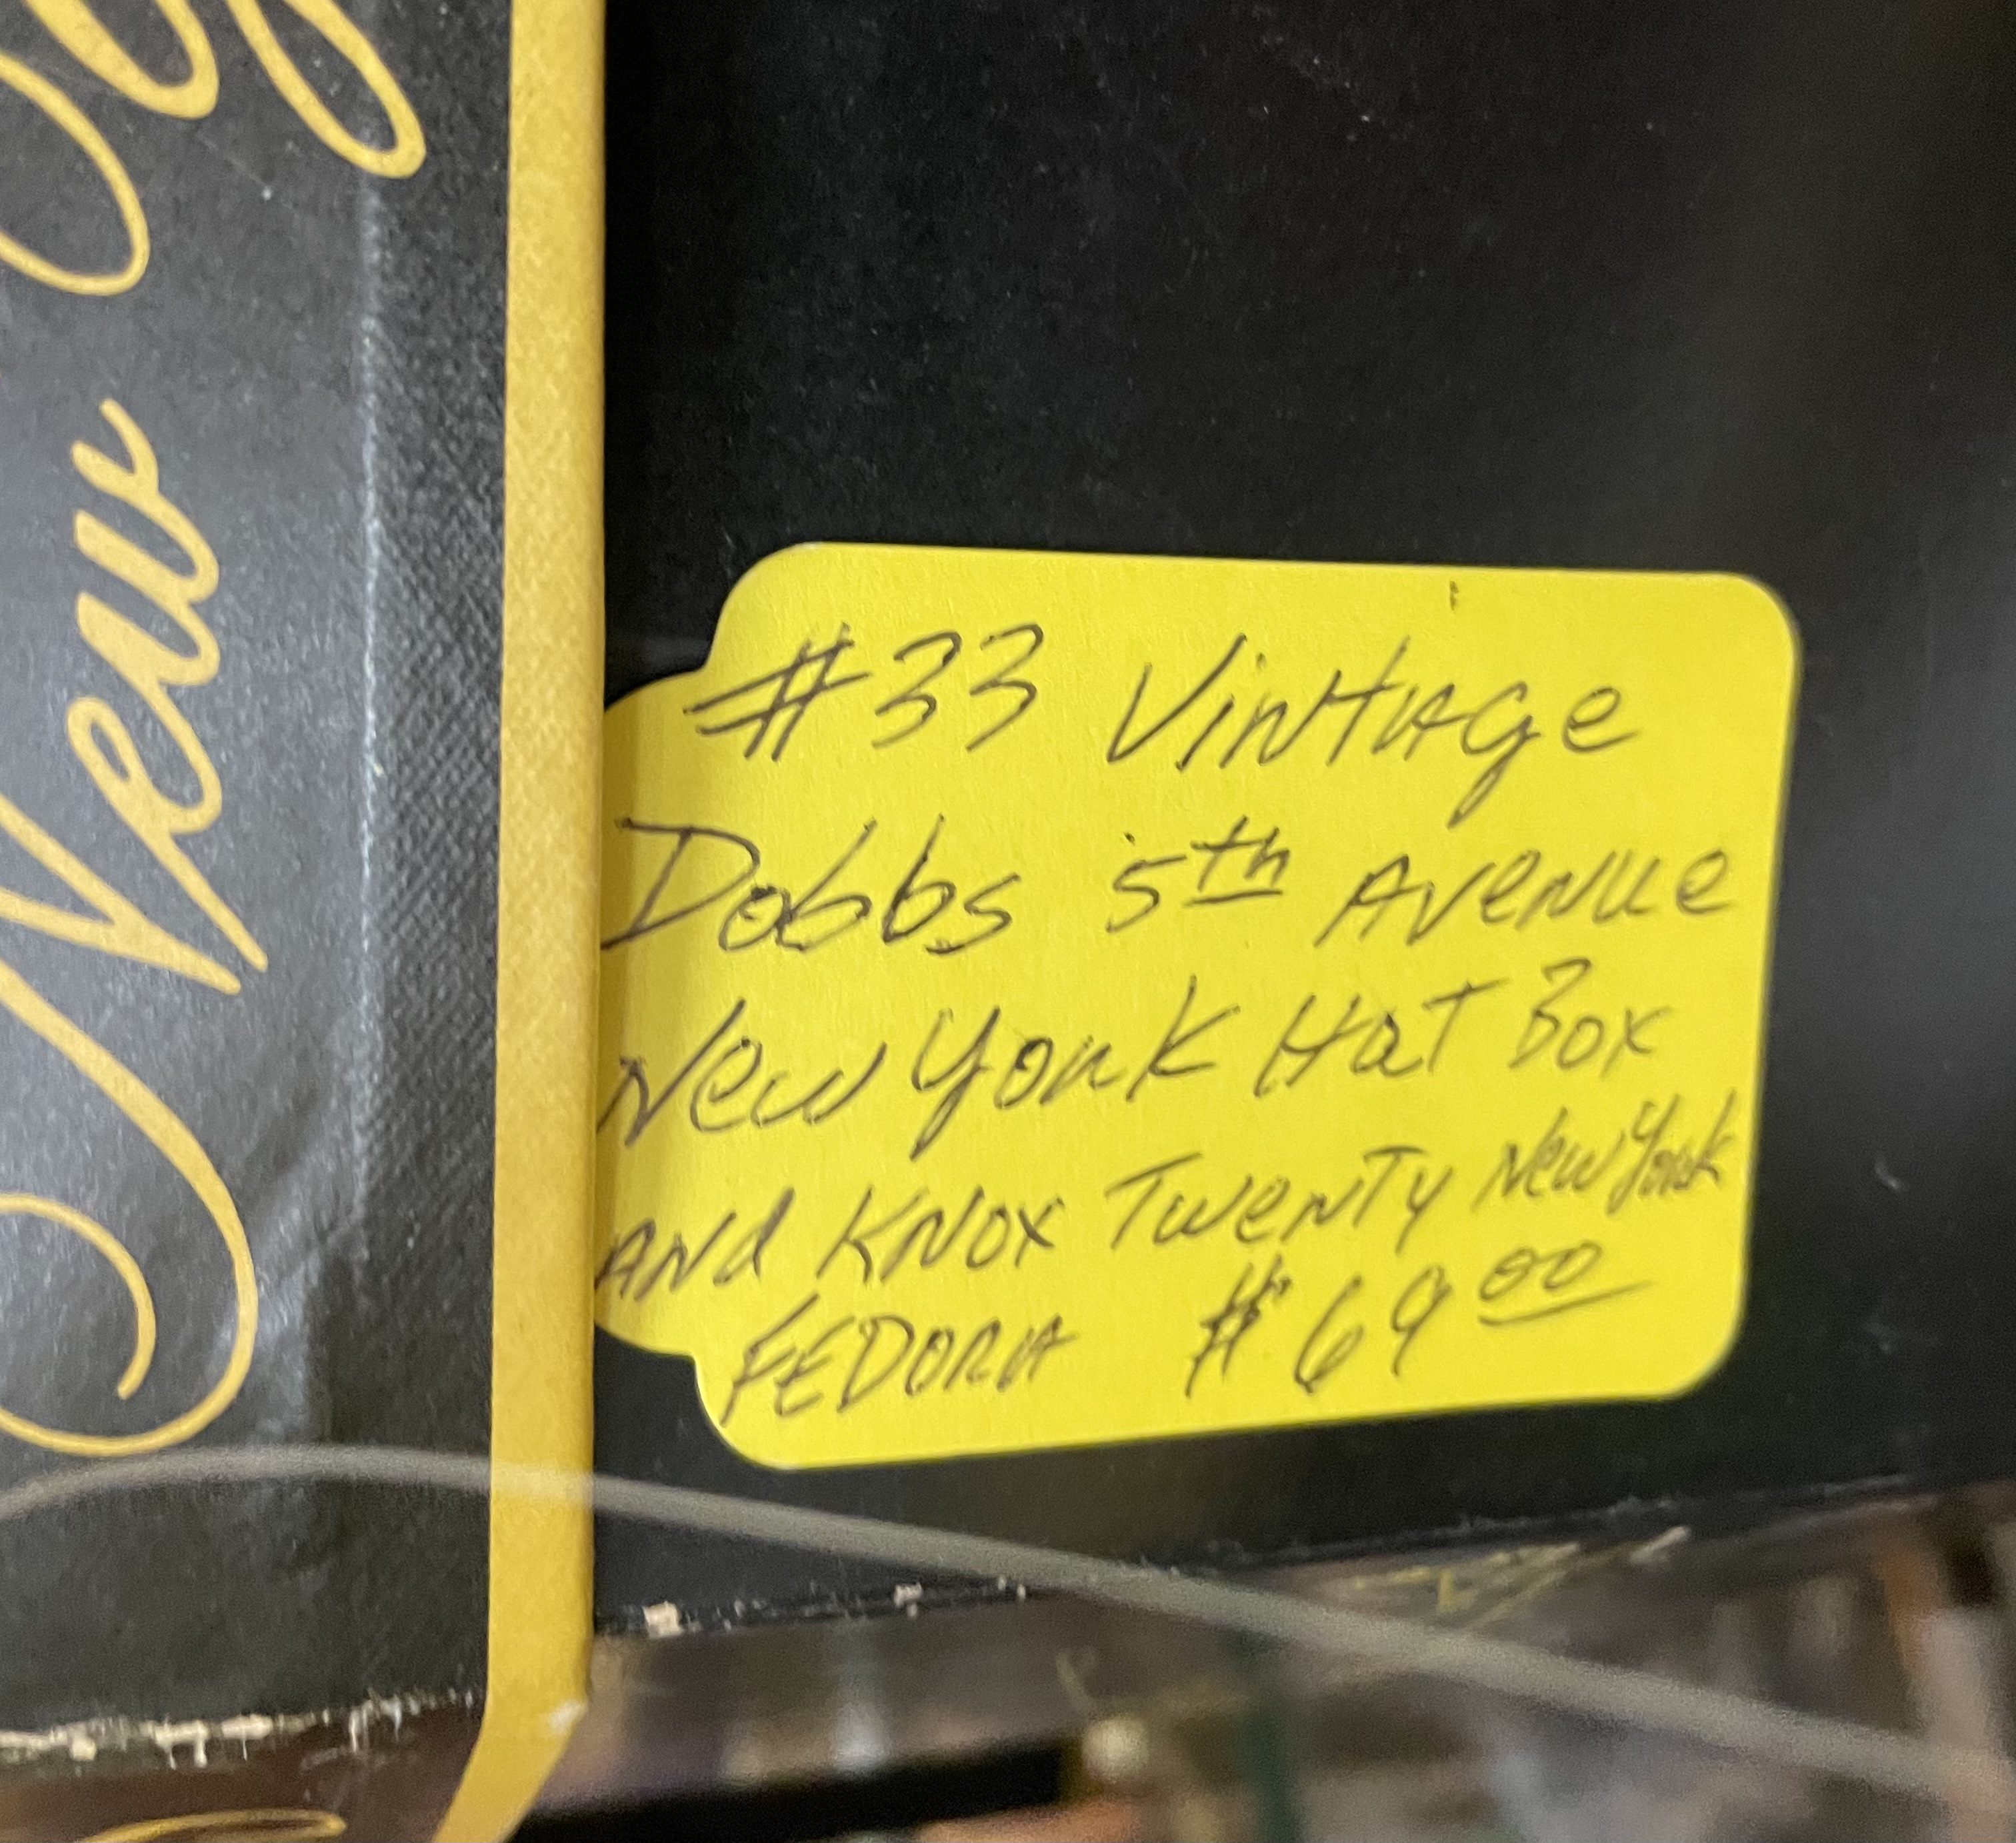 New Yo
#33 Vintage
Dobbs 5th Avenue
New York Hat Box
And Knox Twenty New York
FEDORA $69 00